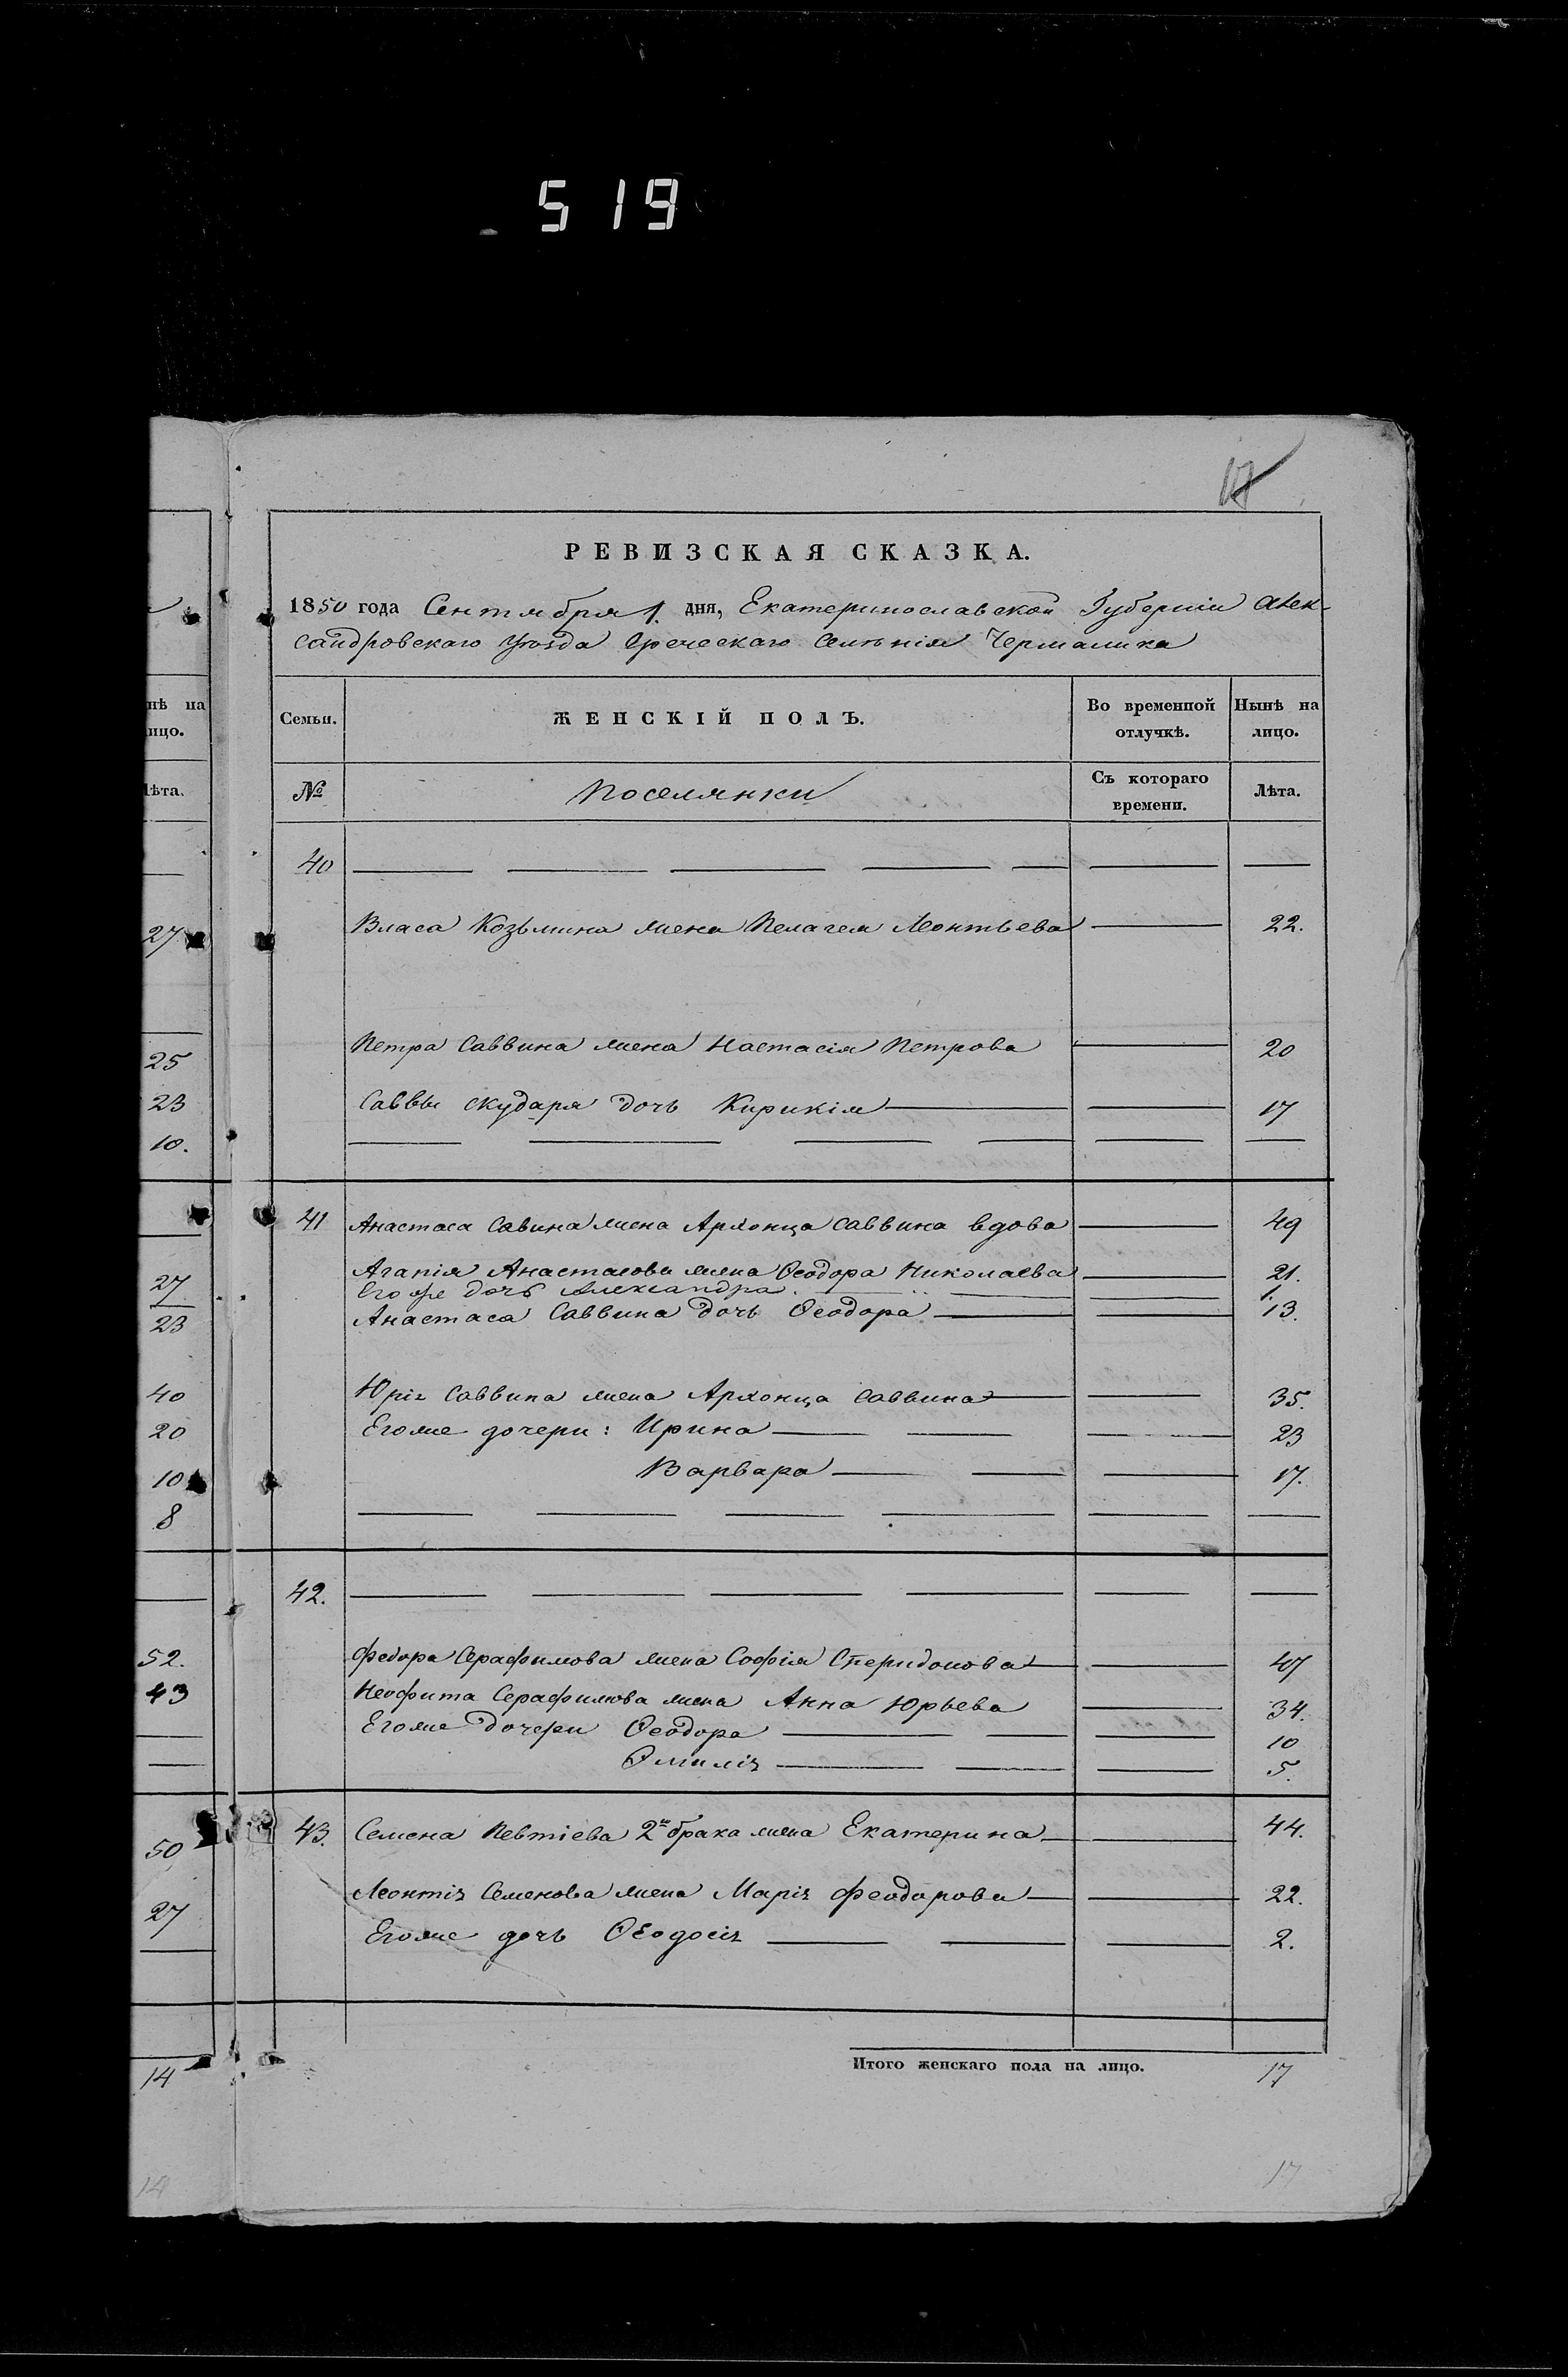 519
17
РЕВИЗСКАЯ СКАЗКА.
1850 года Сентября 1. дня, Екатеринославской Губерніи Алек-
сандровскаго Уѣзда Греческаго Селѣнія Чермалика
нѣ на
ицо.
Лѣта.
Семьи.
ЖЕНСКІЙ ПОЛЪ.
Во временной
отлучкѣ.
Нынѣ на
лицо.
№
Поселянки
Съ котораго
времени.
Лѣта.
40
27
Власа Козьмина жена Пелагея Леонтьева 22.
25
Петра Саввина жена Настасія Петрова 20
23
Саввы Скударя дочь Кирикія 17
10.
41 Анастаса Савина жена Архонца Саввина вдова 49
27
Агапія Анастасова жена Ѳеодора Николаева 21.
Его же дочь Александра 1.
23
Анастаса Саввина дочь Ѳеодора 13.
40
Юрія Саввина жена Архонца Саввина 35.
20
Егоже дочери: Ирина 23
10
Варвара 17.
8
42.
52.
Федора Серафимова жена Софія Спиридонова 47
43
Неофита Серафимова жена Анна Юрьева 34.
Егоже дочери Ѳеодора 10
Ѳмилія 5.
50
43. Семена Певтіева 2го брака жена Екатерина 44.
27
Леонтія Семенова жена Марія Феодорова 22.
Егоже дочь Ѳеодосія 2.
14
Итого женскаго пола на лицо. 17
14
17